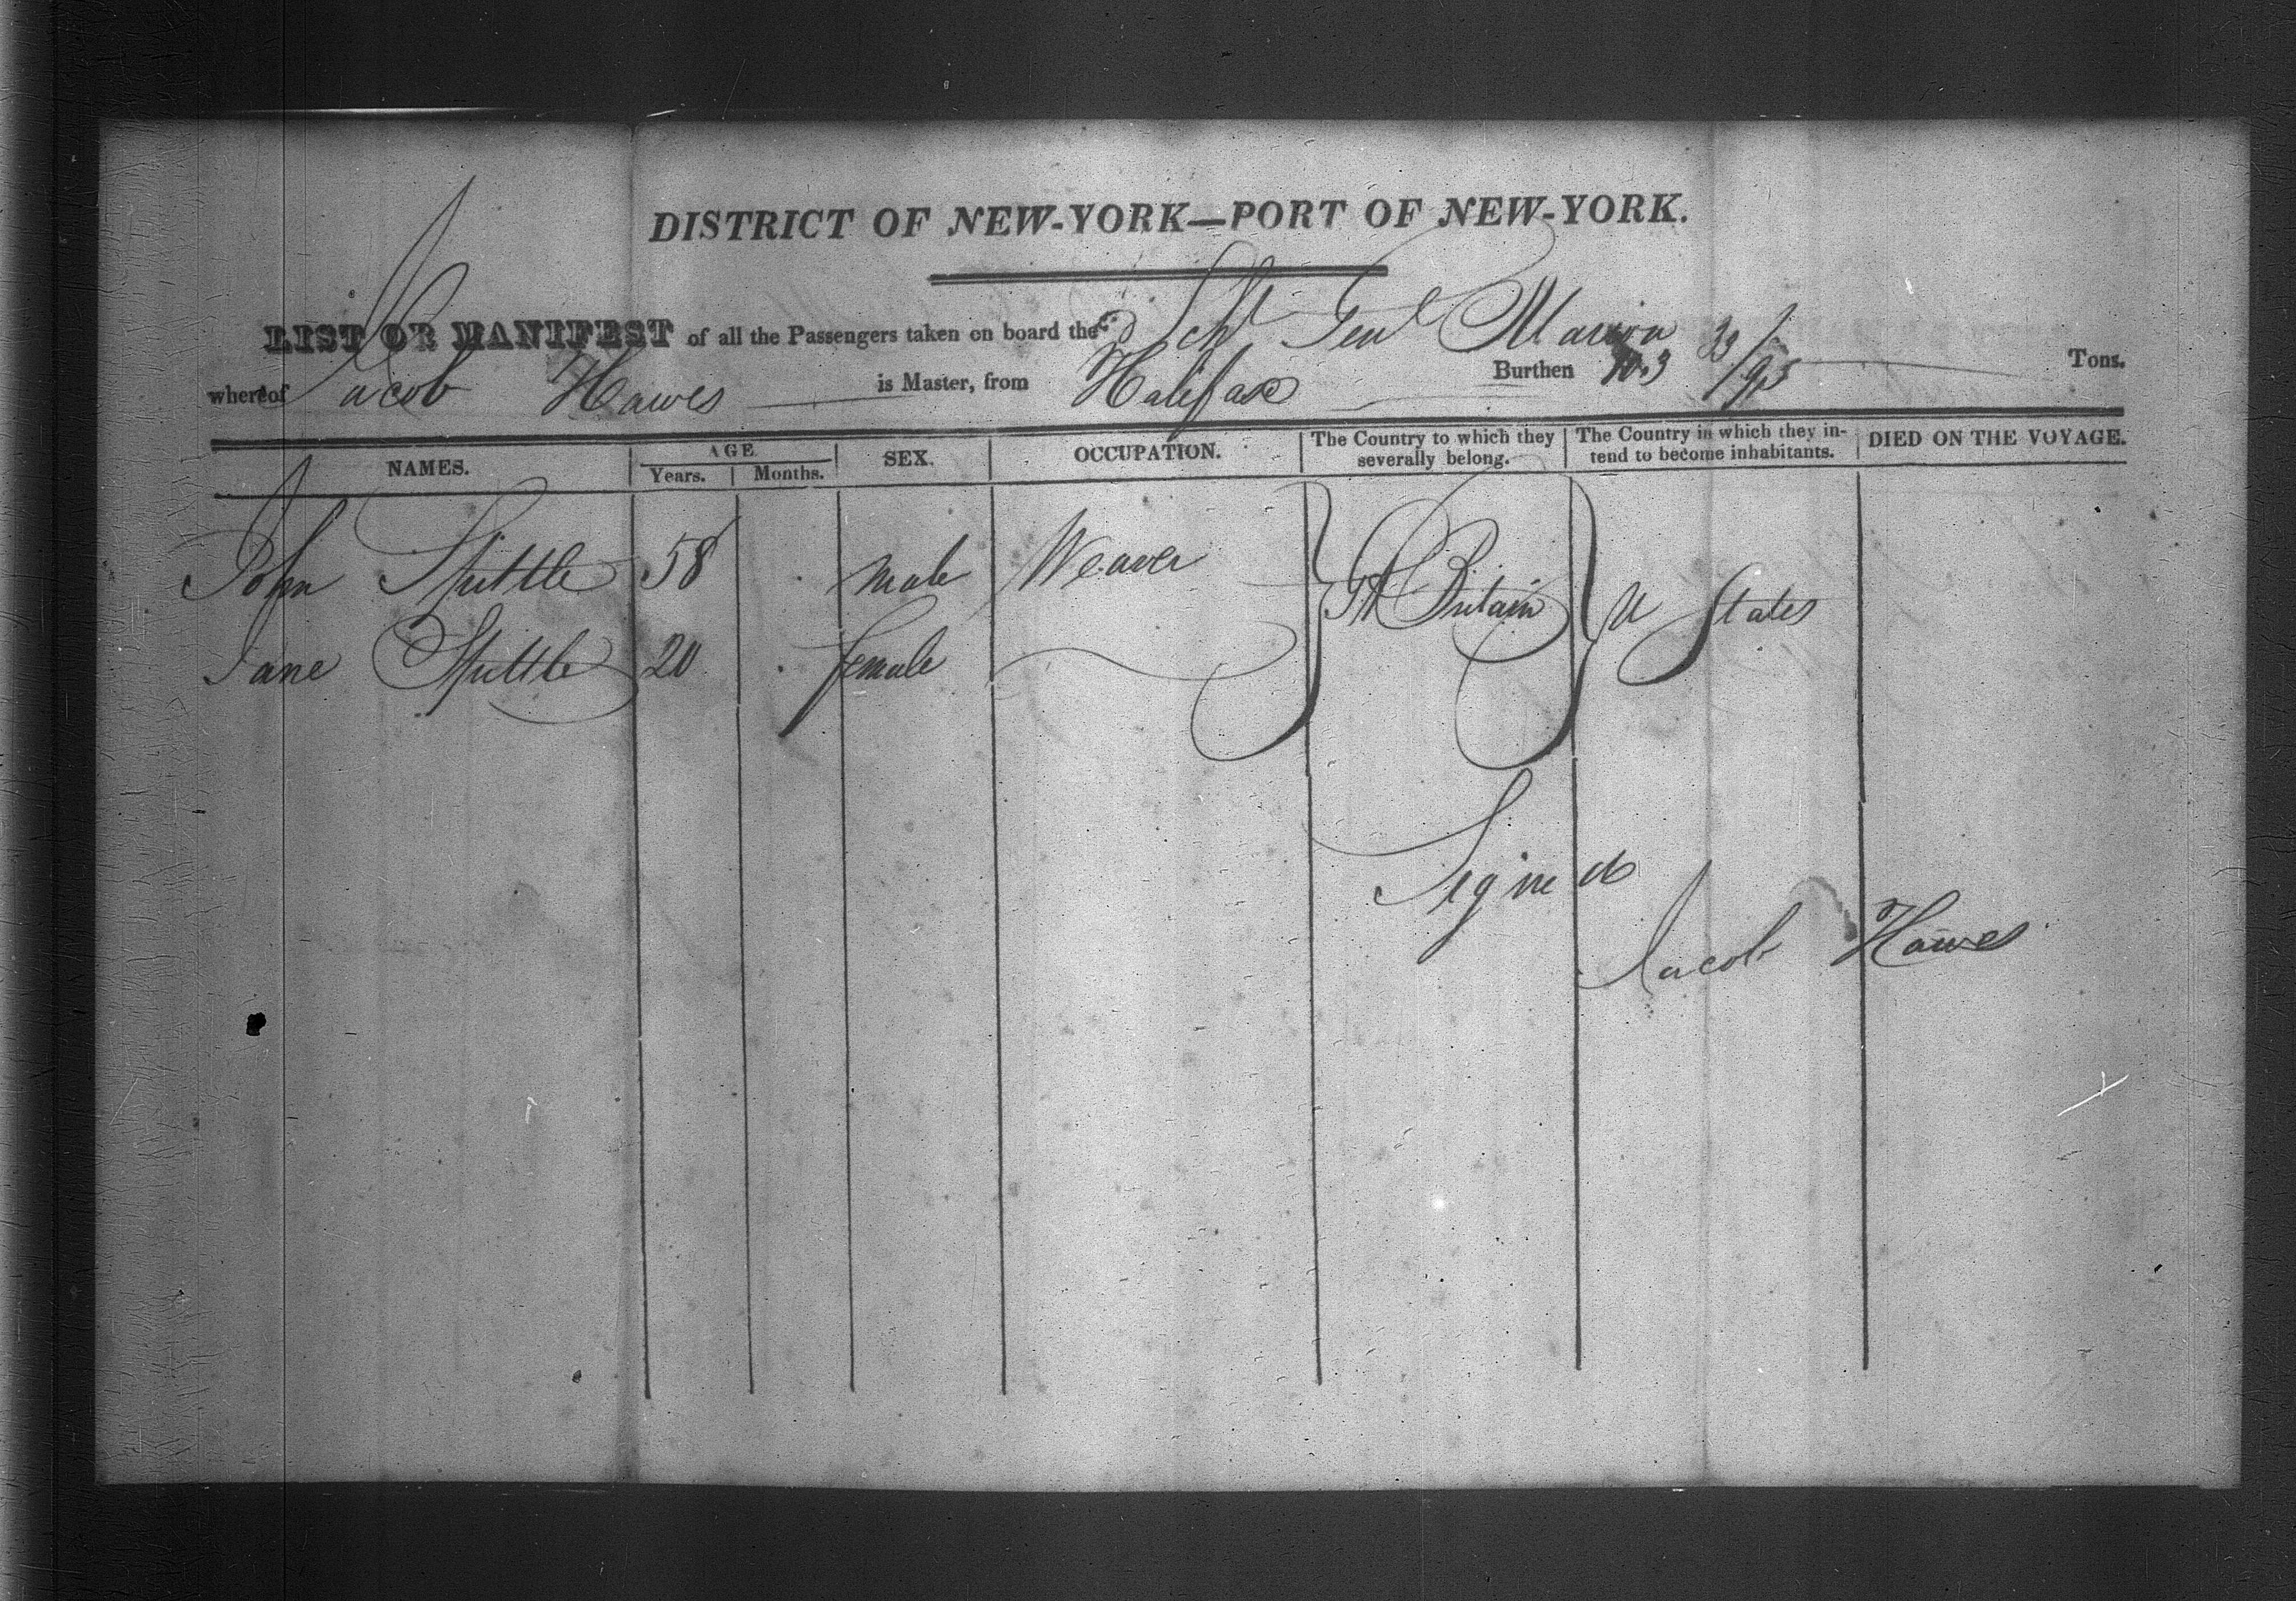 DISTRICT OF NEW-YORK—PORT OF NEW-YORK.
LIST OR MANIFEST of all the Passengers taken on board the Schr Genl Marion
whereof Jacob Hawes is Master, from Halifax Burthen 103 33/95 Tons.
NAMES. AGE Years. Months. SEX. OCCUPATION. The Country to which they severally belong. The Country in which they intend to become inhabitants. DIED ON THE VOYAGE.
John 58 male Weaver Gt Britain U States
Jane 20 female
Signed
Jacob Hawes